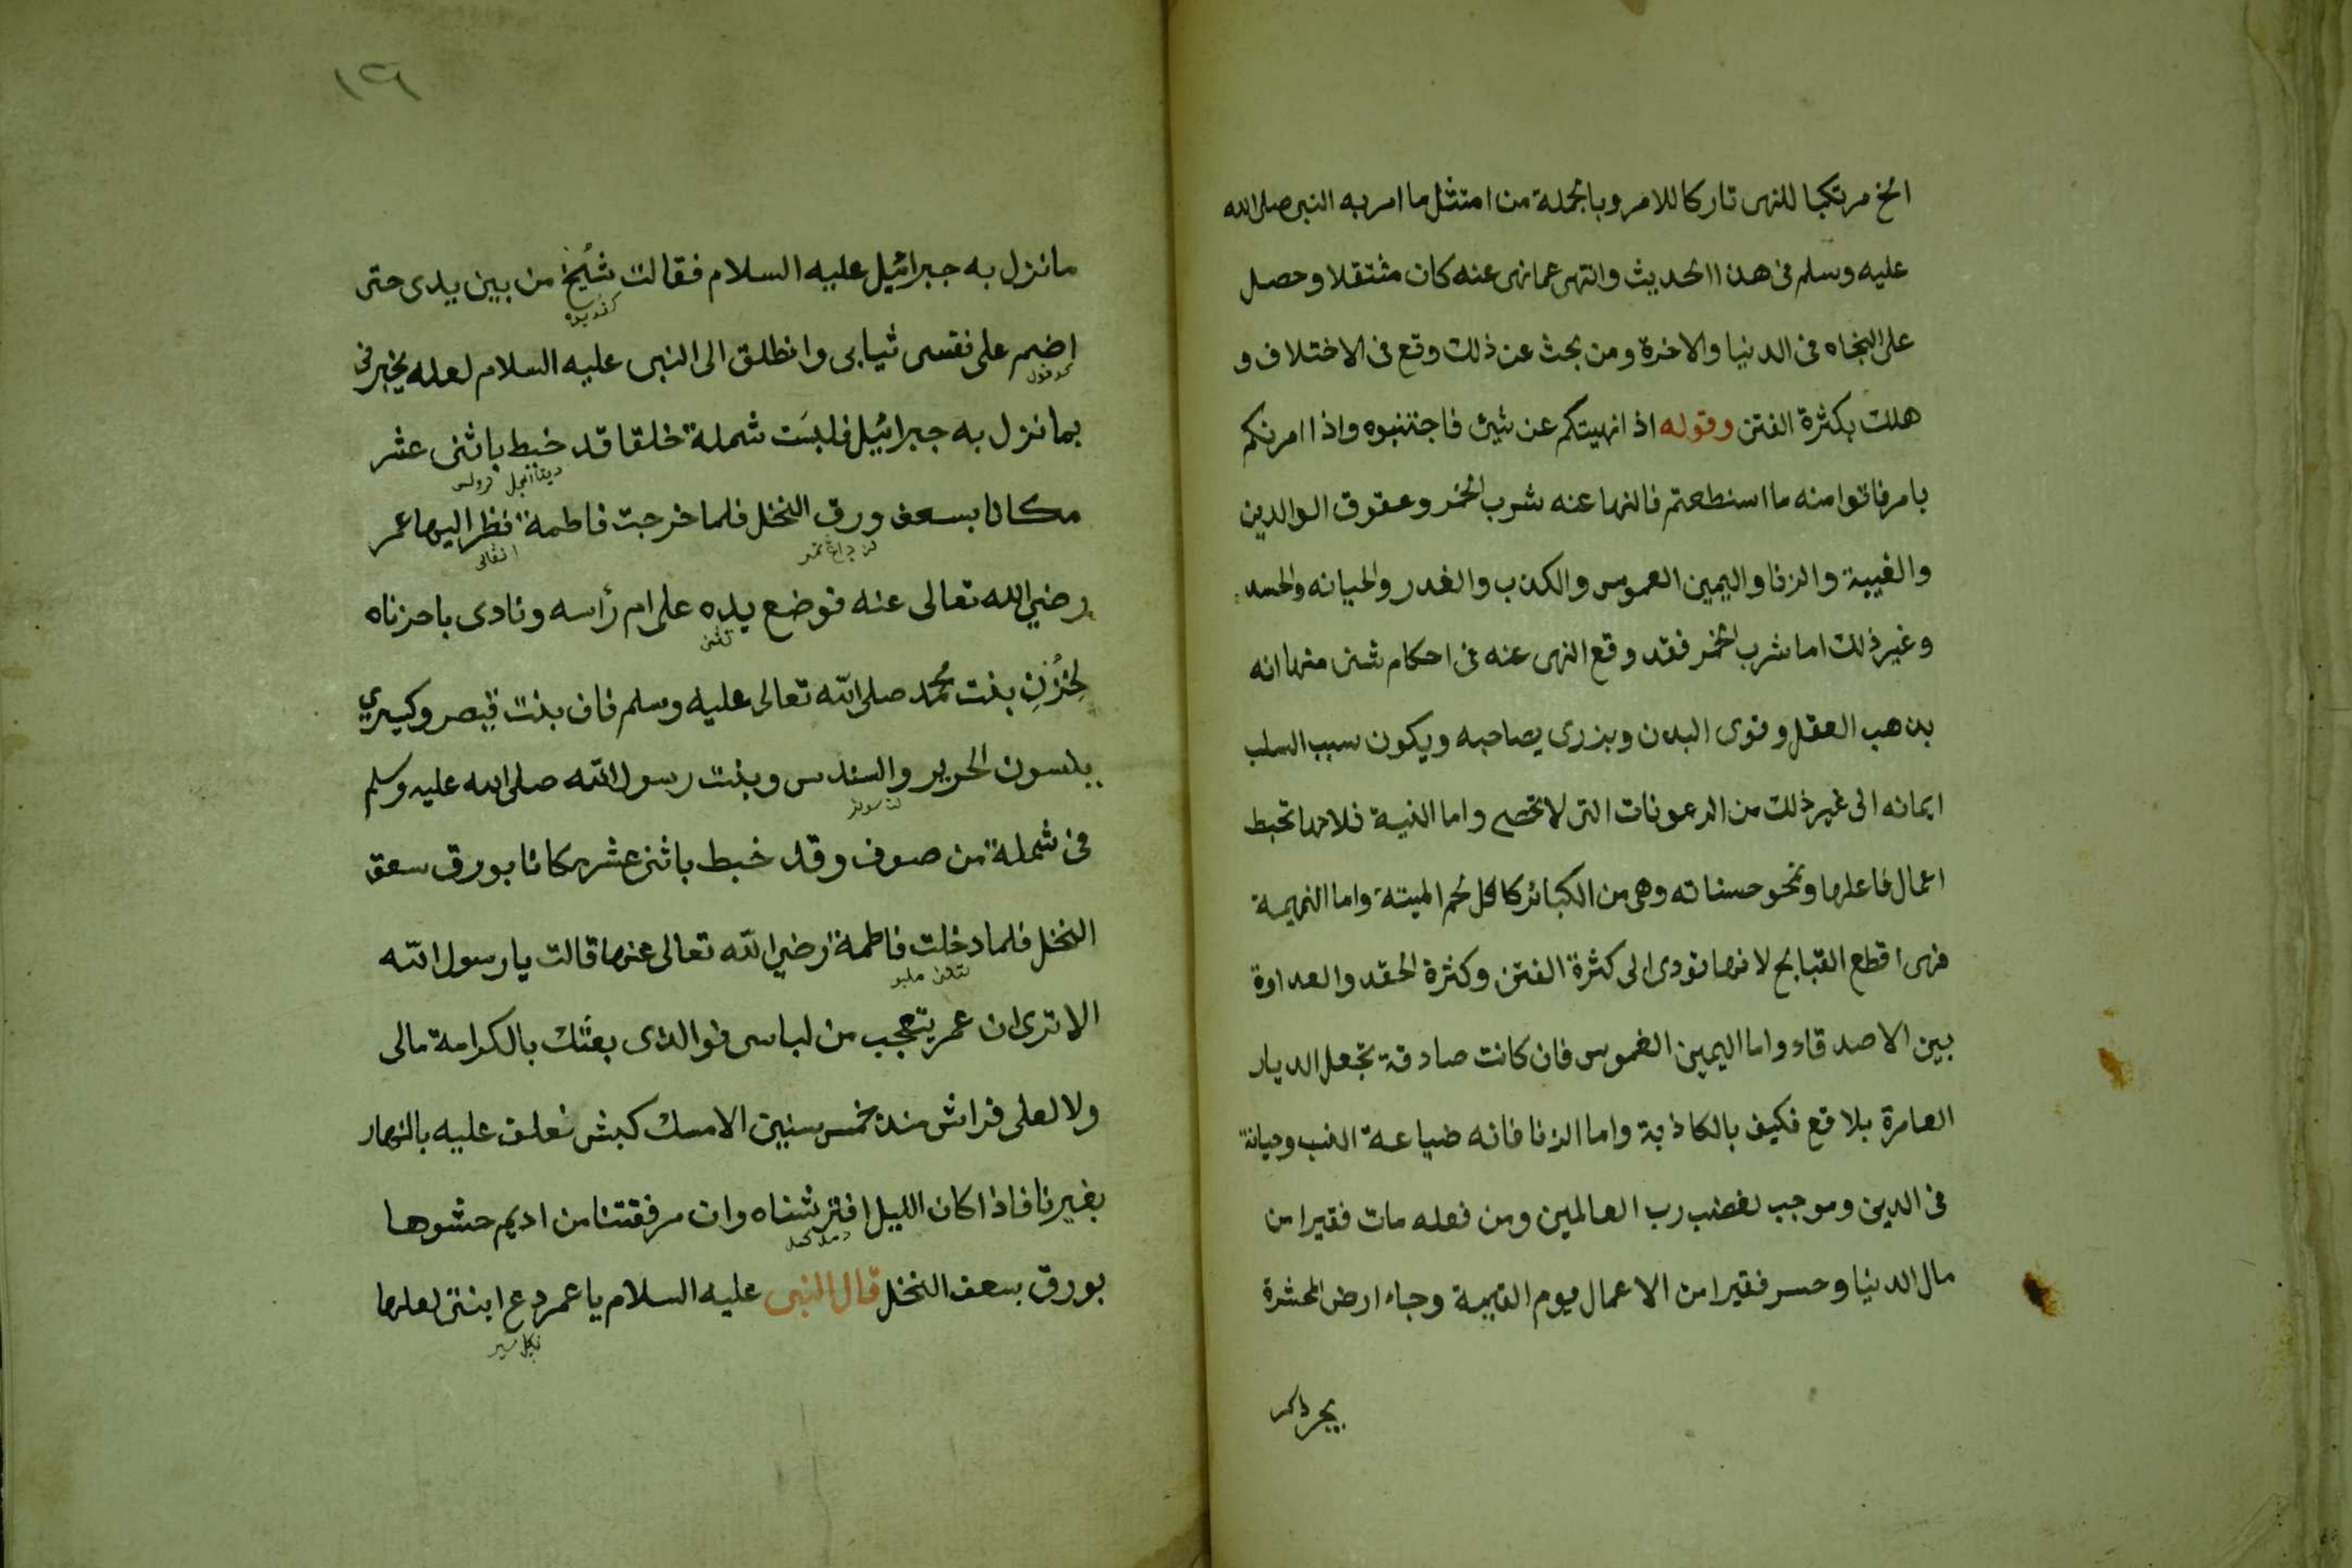 الخ مرتكبا للنهى تاركا للامر وبالجملة من امتثل ما امر به النبى صلى الله
عليه وسلم فى هذا الحديث وانتهى عما نهى عنه كان مثتقلا وحصل
على النجاه فى الدنيا والاخرة ومن بحث عن ذلك وقع فى الاختلاف و
هلك بكثرة الفتن وقوله اذا نهيتكم عن شيئ فاجتنبوه واذا امرتكم
بامر فاتوا منه ما استطعتم فالنها عنه شرب الخمر وعقوق الوالدين
والغيبة والزنا واليمين الغموس والكذب والغدر والخيانه والحسد
وغير ذلك اما شرب الخمر فقد وقع النهى عنه فى احكام شتى منها انه
يذهب العقل وقوى البدن ويزرى بصاحبه ويكون سبب السلب
ايمانه الى غير ذلك من الرعونات التى لا تحصى واما الغيبة فلانها تحبط
اعمال فاعلها وتمحو حسناته وهى من الكبائر كاكل لحم الميتة واما النميمة
فهى اقطع القبايح لانها تودى الى كثرة الفتن وكثرة الحقد والعداوة
بين الاصدقاء واما اليمين الغموس فان كانت صادقة تجعل الديار
العامرة بلاقع فكيف بالكاذبة واما الزنا فانه ضياعة النسب وخيانة
فى الدين وموجب لغضب رب العالمين ومن فعله مات فقيرا من
مال الدنيا وحسر فقيرا من الاعمال يوم القيمة وجاء ارض المحشرة
١٢٦
ما نزل به جبرائيل عليه السلام فقالت شيخ من بين يدى حتى
اضم على نفسى ثيابى وانطلق الى النبى عليه السلام لعله يخبرنى
بما نزل به جبرائيل فلبست شملة خلقا قد خيط باثنى عشر
مكانا بسعف ورق النخل فلما خرجت فاطمة نظر اليها عمر
رضي الله تعالى عنه فوضع يده على ام رأسه ونادى باحزناه
لحزن بنت محمد صلى الله تعالى عليه وسلم فان بنت قيصر وكيسري
يلبسون الحرير والسندس وبنت رسول الله صلى الله عليه وسلم
فى شملة من صوف وقد خيط باثنى عشر مكانا بورق سعق
النخل فلما دخلت فاطمة رضي الله تعالى عنها قالت يا رسول الله
الا ترى ان عمر يتعجب من لباسى فوالذى بعثك بالكرامة مالى
ولا لعلى فراش منذ خمس سنين الا مسك كبش نعلف عليه بالنهار
بغيرنا فاذا كان الليل افترشناه وان مرفقتنا من اديم حشوها
بورق بسعف النخل قال النبى عليه السلام يا عمر دع ابنتى لعلها